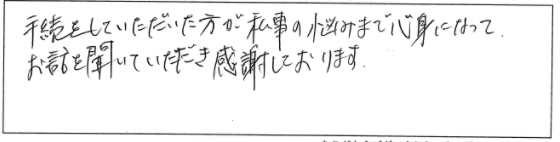 手続をしていただいた方が私事の悩みまで心身になって、
お話を聞いていただき感謝しております。